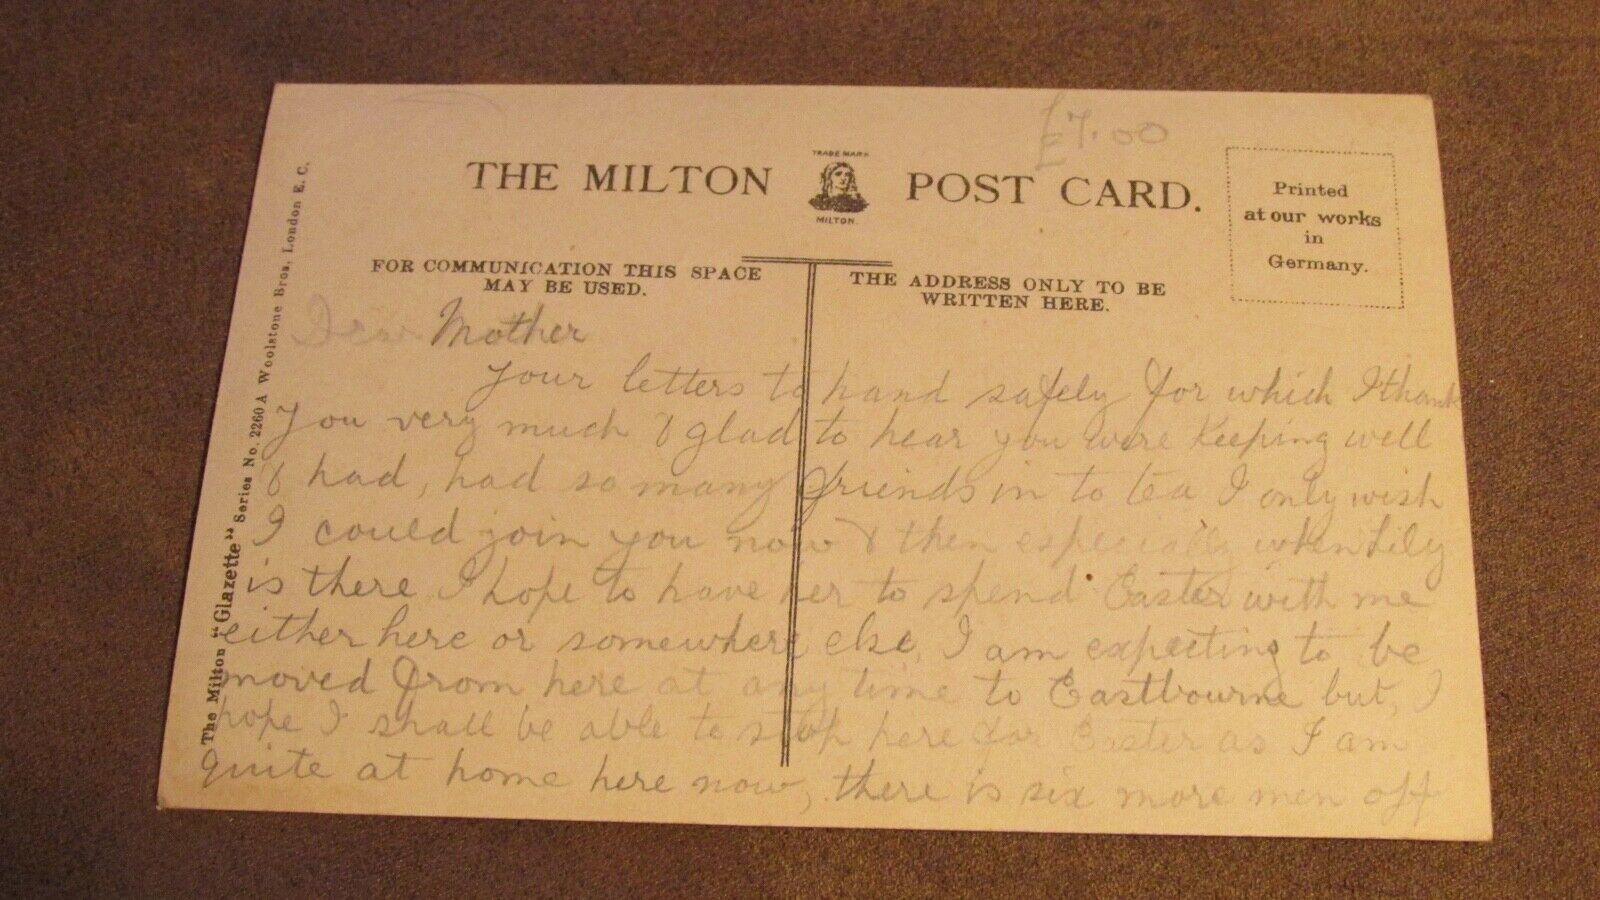 £7.00
TRADE MARK
THE MILTON POST CARD.
MILTON.
Printed
at our works
in
Germany.
FOR COMMUNICATION THIS SPACE
MAY BE USED.
THE ADDRESS ONLY TO BE
WRITTEN HERE.
The Milton "Glazette" Series No. 2260 A Woolstone Bros. London E. C.
Dear Mother
Your letters to hand safely for which I thank
you very much & glad to hear you were keeping well
& had, had so many friends in to tea I only wish
I could join you now & then especially when Lily
is there I hope to have her to spend Easter with me
either here or somewhere else, I am expecting to be
moved from here at any time to Eastbourne but, I
hope I shall be able to stop here for Easter as I am
quite at home here now, there is six more men off